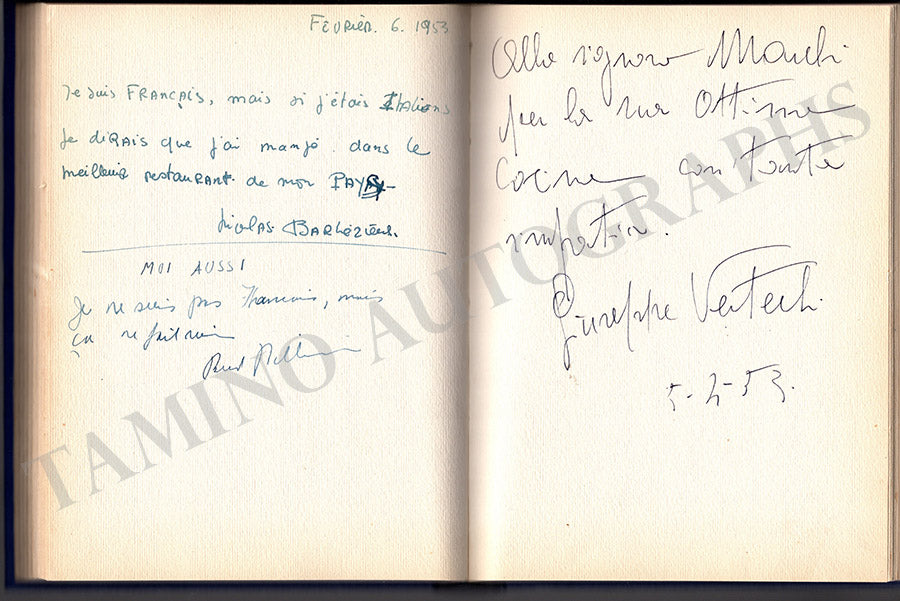 FÉVRIER. 6. 1953
Je suis FRANÇAIS, mais si j'étais Italiens
Je diRAis que j'ai mangé dans le
meilleur restauRANt de mon PAYS
Nicolas BARLÉZIEUX.
MOI AUSSI
Je ne suis pas Francais, mais
ça ne fait rien
Alla signora Marchi
per la sua Ottima
Cocina con tanta
simpatia.
Giuseppe Vertechi
5-2-53.
TAMINO AUTOGRAPHS